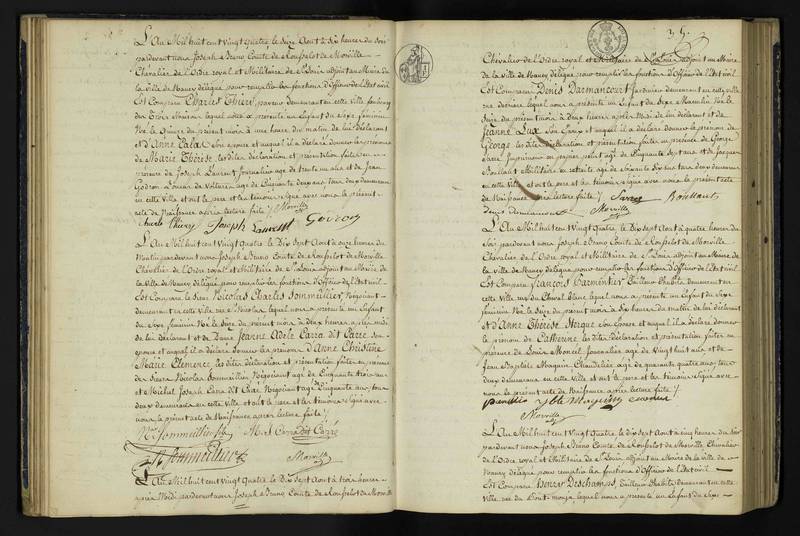 L'An Mil huit cent vingt quatre le Seize Aout à dix heures du Soir
pardevant nous Joseph Bruno Comte de Rousselot de Morville
Chevalier de l'Ordre royal et Militaire de St Louis adjoint au Maire de
la Ville de Nancy délégué pour remplir les fonctions d'Officier de l'Etat civil
Est Comparu Charles Thiery, paveur demeurant en cette ville faubourg
des Trois Maisons lequel nous a présenté un Enfant du Sexe féminin
Né le Quinze du présent mois à une heure du matin de lui déclarant
et d'Anne Calais Son epouse et auquel il a déclaré donner les prénoms
de Marie Thérèse, les dites déclaration et présentation faites en
presence de Joseph Laurent Journalier agé de trente un ans et de Jean
Godron Loueur de Voitures agé de Cinquante deux ans, tous deux demeurant
en cette Ville et ont le pere et les témoins Signé avec nous le présent
acte de Naissance après lecture faite /. Morville
Charle Thiery Joseph Laurent Godron
L'An Mil huit cent Vingt Quatre le Dix Sept Aout à onze heures du
Matin pardevant nous Joseph Bruno Comte de Rousselot de Morville
Chevalier de l'Ordre royal et Militaire de St Louis adjoint au Maire de
la Ville de Nancy délégué pour remplir les fonctions d'Officier de l'Etat civil
Est Comparu le Sieur Nicolas Charles Sommeillier, Négociant
demeurant en cette Ville rue St Nicolas lequel nous a présenté un Enfant
du Sexe féminin Né le Seize du présent mois à Deux heures après midi
de lui déclarant et de Dame Jeanne Adèle Carra dit Carré Son
epouse et auquel il a déclaré donner les prénoms d'Anne Christine
Marie Clémence, les dites déclaration et présentation faites en presence
de Sieurs Nicolas Sommeillier Négociant agé de Cinquante trois ans
et Michel Joseph Carra dit Carré Négociant agé de Cinquante ans, tous
deux demeurant en cette Ville et ont le pere et les témoins Signé avec
nous le présent acte de Naissance après lecture faite /.
N. Sommeillier M. J. Carra dit Carré
Sommeillier Morville
L'An Mil huit cent Vingt Quatre le Dix Sept Aout à trois heures
après Midi pardevant nous Joseph Bruno Comte de Rousselot de Morville
35.
Chevalier de l'Ordre royal et Militaire de St Louis adjoint au Maire
de la Ville de Nancy, délégué pour remplir les fonctions d'Officier de l'Etat civil
Est Comparu Denis Darmancourt demeurant en cette ville
lequel nous a présenté un Enfant du Sexe Masculin Né le
Seize du présent mois à deux heures après Midi de lui déclarant et de
Jeanne Lux Son Epouse et auquel il a déclaré donner le prénom de
George, les dites déclaration et présentation faites en présence de George
Sarre Imprimeur en papier peint agé de Cinquante Sept ans et de Jacques
Rouillant Militaire en retraite agé de Soixante dix ans tous deux demeurant
en cette Ville et ont le pere et les témoins Signé avec nous le présent acte
de Naissance après lecture faite /. Sarre Rouillant
Denis Darmancourt Morville
L'An Mil huit cent Vingt Quatre le Dix Sept Aout à quatre heures du
Soir pardevant nous Joseph Bruno Comte de Rousselot de Morville
Chevalier de l'Ordre royal et Militaire de St Louis adjoint au Maire de
la Ville de Nancy, délégué pour remplir les fonctions d'Officier de l'Etat civil
Est Comparu François Parmentier Tailleur d'habits demeurant en
cette Ville rue du Cheval blanc lequel nous a présenté un Enfant du Sexe
féminin Né le Seize du présent mois à dix heures du matin de lui déclarant
et d'Anne Thérèse Son épouse et auquel il a déclaré donner
le prénom de Catherine, les dites déclaration et présentation faites en
présence de Louis Journalier agé de Vingt huit ans et de
Jean Baptiste Maguin, Chandelier agé de quarante quatre ans tous
deux demeurant en cette Ville et ont le pere et les témoins Signé avec
nous le présent acte de Naissance après lecture faite /.
J Bte Maguin
Morville
L'An Mil huit cent Vingt Quatre le dix sept Aout à cinq heures du Soir
pardevant nous Joseph Bruno Comte de Rousselot de Morville, Chevalier
de l'Ordre royal et Militaire de St Louis, adjoint au Maire de la Ville de
Nancy délégué pour remplir les fonctions d'Officier de l'Etat civil
Est Comparu Henry Deschamps, Tailleur d'habits demeurant en cette
Ville rue du Pont-mouja lequel nous a présenté un Enfant du Sexe